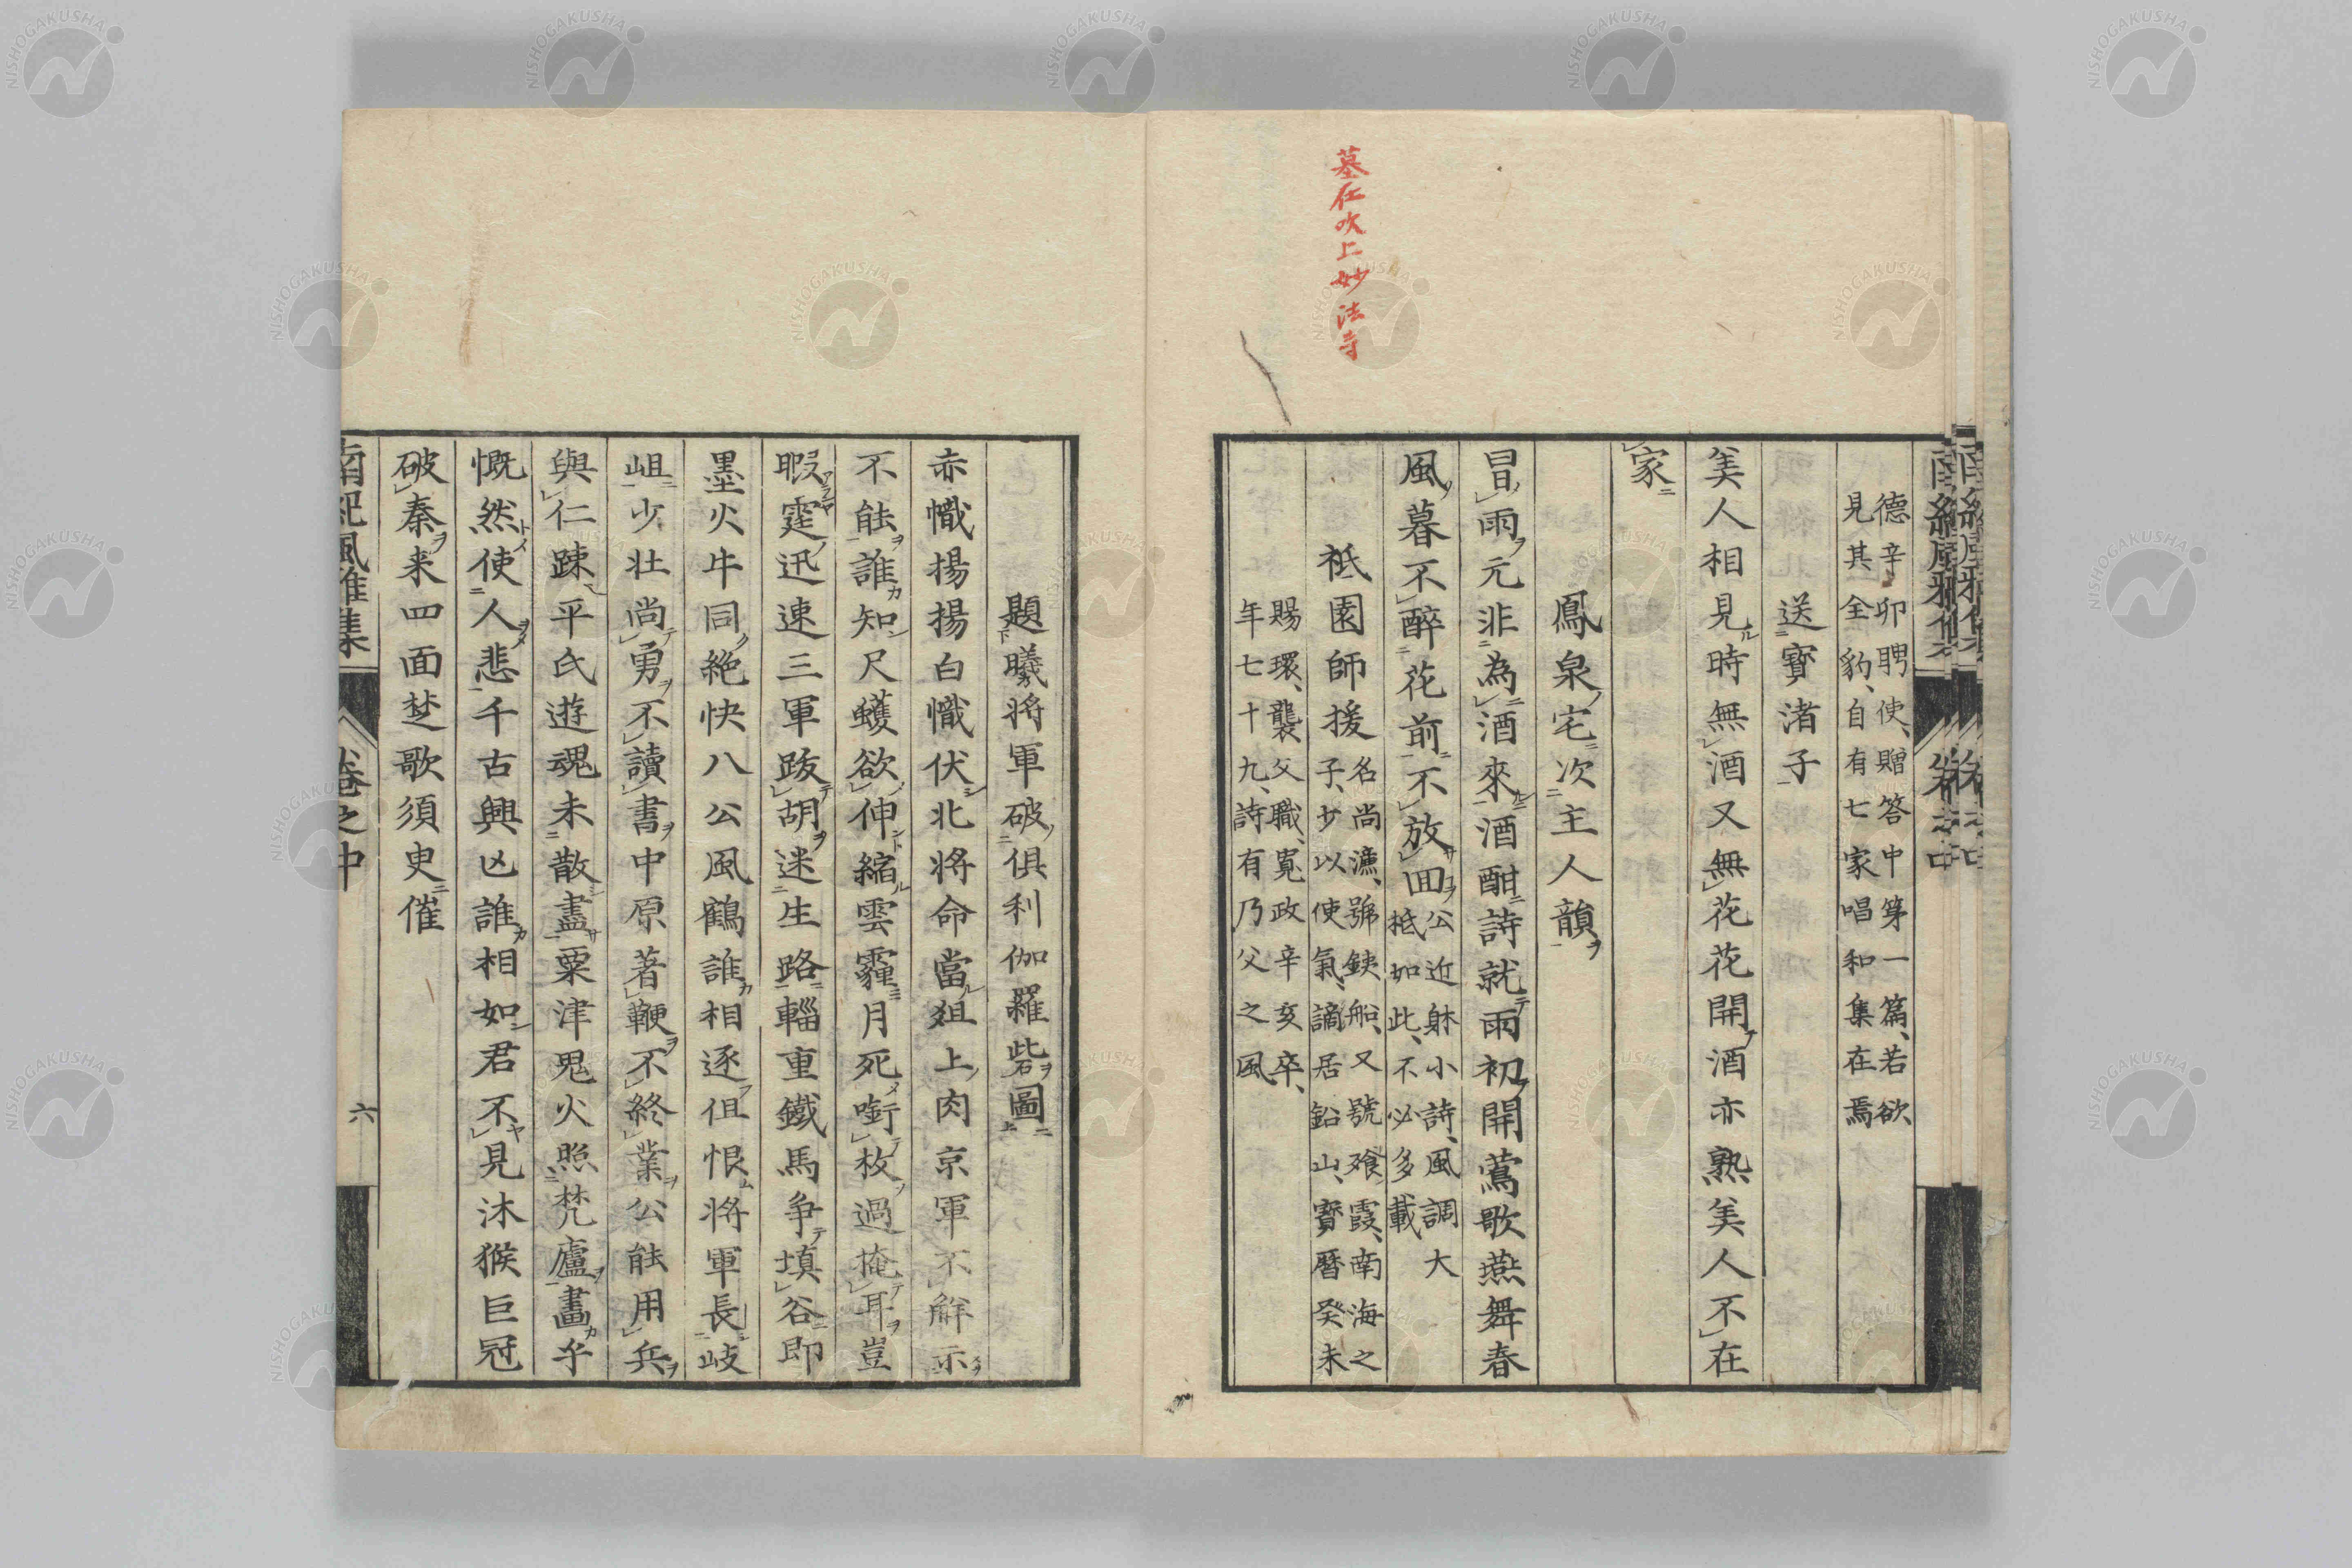 墓在吹上妙法寺
德辛卯聘使、贈答中第一篇、若欲
見其全豹、自有七家唱和集在焉
送寶渚子
美人相見時無酒又無花花開酒亦熟美人不在
家
鳳泉宅次主人韻
冒雨元非為酒來酒酣詩就雨初開鶯歌燕舞春
風暮不醉花前不放回
公近躰小詩、風調大
抵如此、不必多載
祗園師援
名尚濂、號鉄船、又號飡霞、南海之
子、少以使氣、謫居鉛山、寶曆癸未
賜環、襲父職、寬政辛亥卒、
年七十九、詩有乃父之風
題曦将軍破俱利伽羅砦圖
赤幟揚揚白幟伏北将命當爼上肉京軍不解示
不能誰知尺蠖欲伸縮雲霾月死啣枚過掩耳豈
暇霆迅速三軍跋胡迷生路輜重鐵馬争填谷即
墨火牛同絶快八公風鶴誰相逐但恨将軍長岐
岨少壮尚勇不讀書中原著鞭不終業公能用兵
與仁踈平氏遊魂未散盡粟津鬼火照梵廬畵乎
慨然使人悲千古興亾誰相如君不見沐猴巨冠
破秦来四面楚歌須臾催
南紀風雅集
卷之中
六
NISHOGAKUSHA